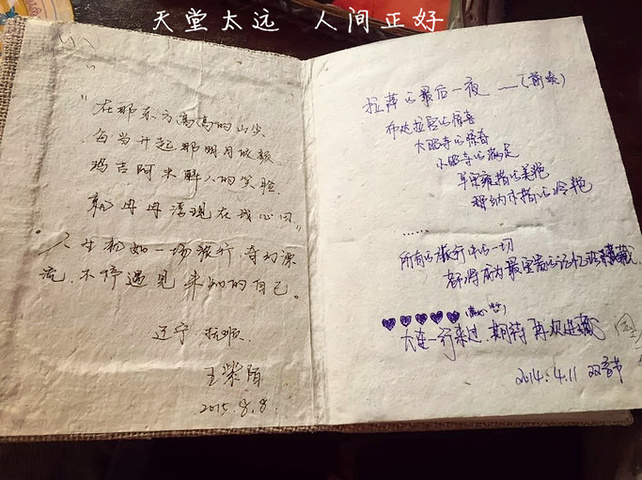 天堂太远 人间正好
"在那东方高高的山尖
每当升起那明月皎颜
玛吉阿米醉人的笑脸
就冉冉浮现在我心田"
人生就如一场旅行,奇幻漂
流,不停遇见未知的自己。
辽宁 抚顺.
王紫陌
2015.8.8.
拉萨的最后一夜 ——(前奏)
布达拉宫的惊喜
大昭寺的惊奇
小昭寺的满足
羊卓雍措的美艳
纳木措的冷艳
……
所有的旅行中的一切
都将成为最宝贵的记忆被珍藏
大连一行来过,期待再次进藏
2014.4.11 双音节